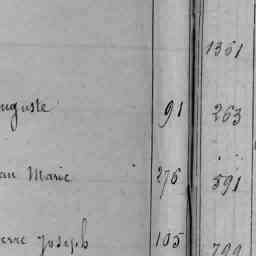 1361
uguste 91 263
an Marie 276 591
erre Joseph 105 799